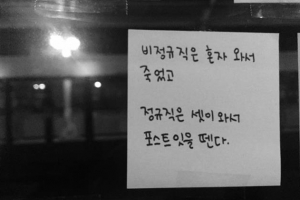 비정규직은 혼자 와서
죽었고
정규직은 셋이 와서
포스트잇을 뗀다.